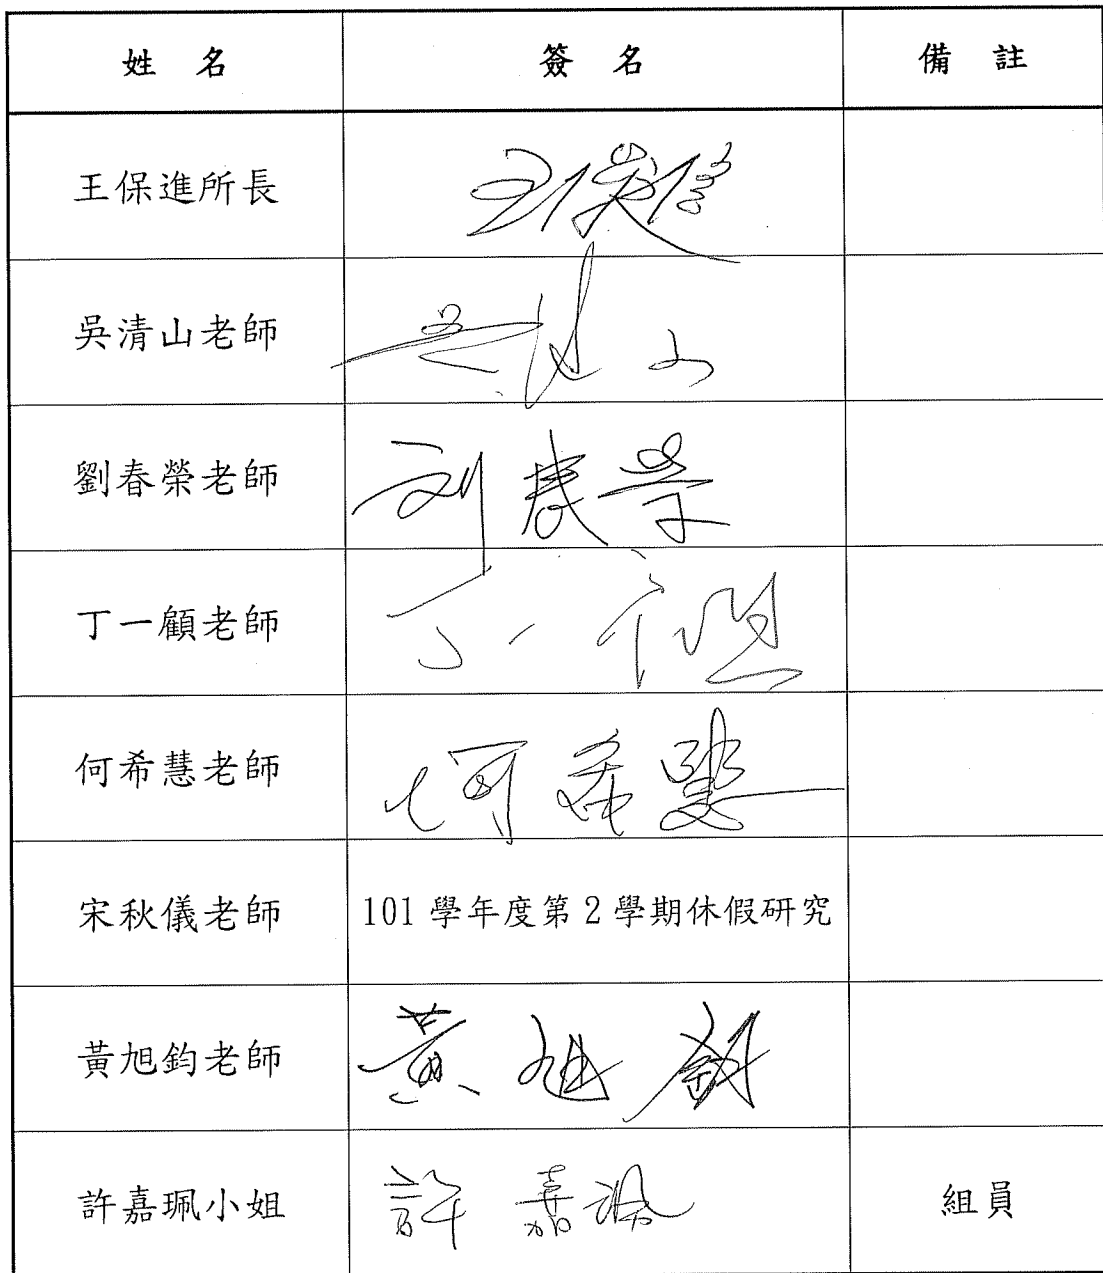 姓名 簽名 備註
王保進所長
吳清山老師 吳清山
劉春榮老師 刘春荣
丁一顧老師 丁一顧
何希慧老師 何希慧
宋秋儀老師 101學年度第2學期休假研究
黃旭鈞老師 黃旭鈞
許嘉珮小姐 許嘉珮 組員